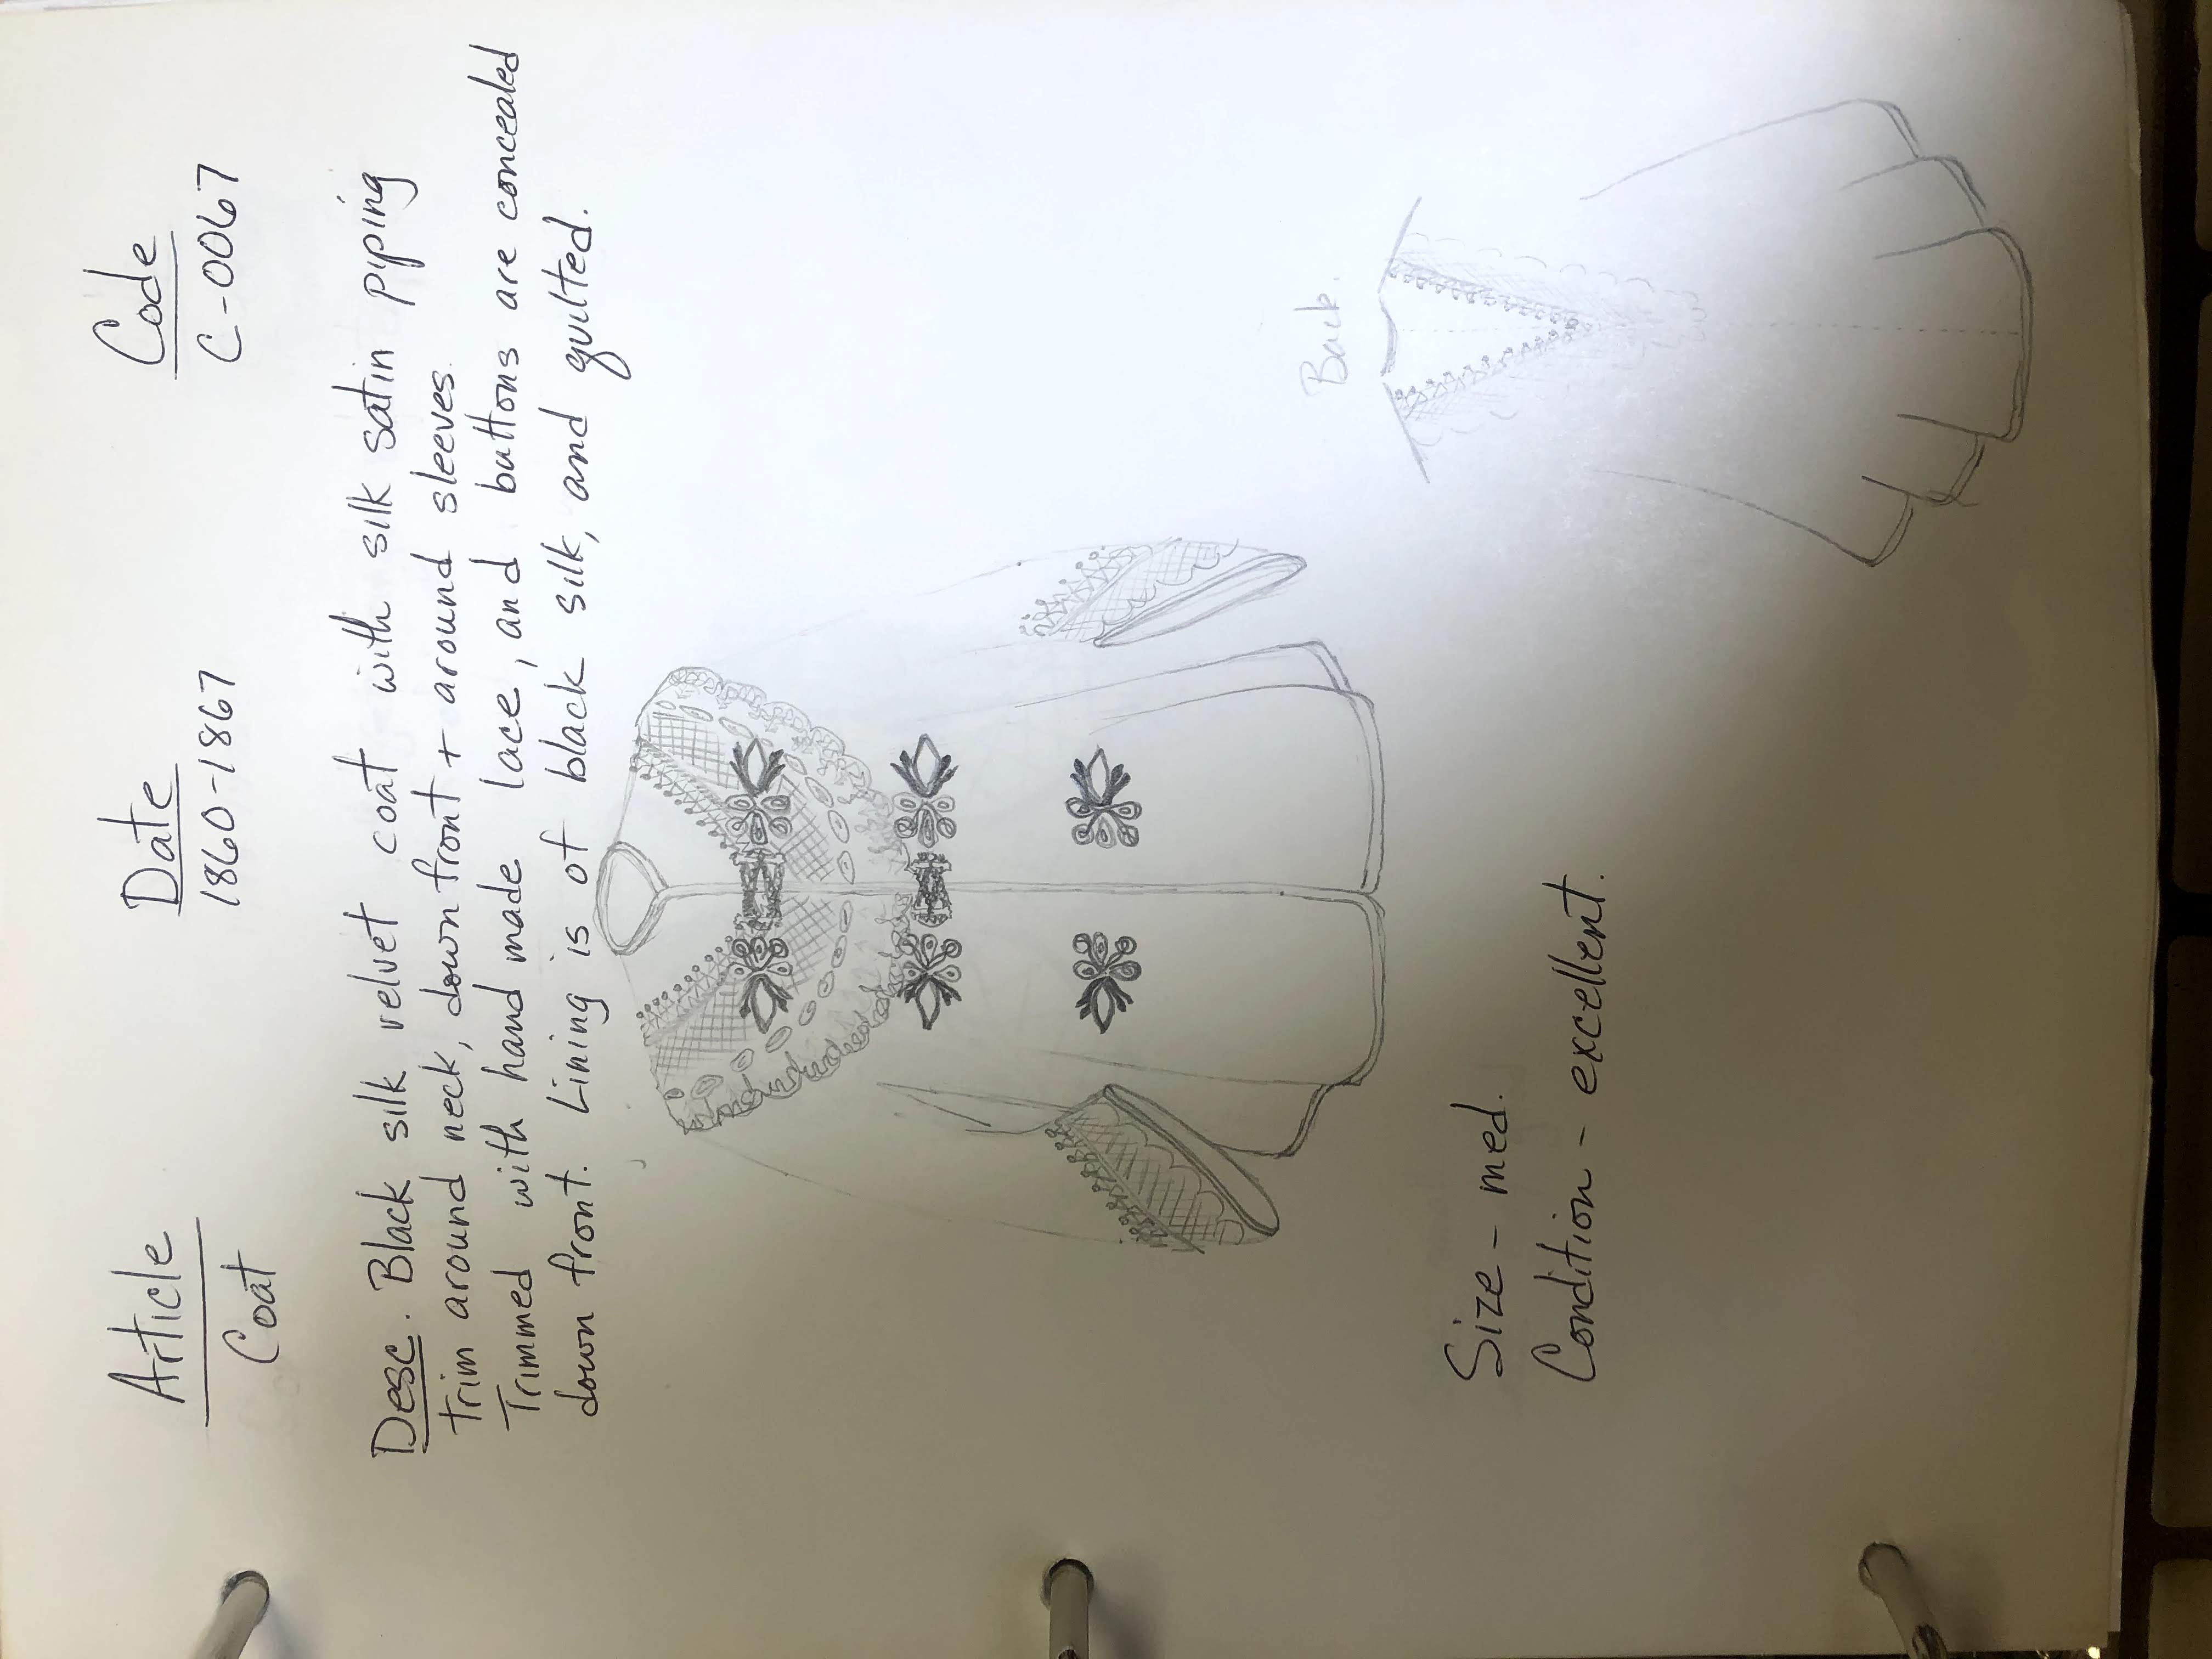 Article Date Code
Coat 1860-1867 C-0067
Desc. Black silk velvet coat with silk satin piping
trim around neck, down front + around sleeves.
Trimmed with hand made lace, and buttons are concealed
down front. Lining is of black silk, and quilted.
Back.
Size - med.
Condition - excellent.